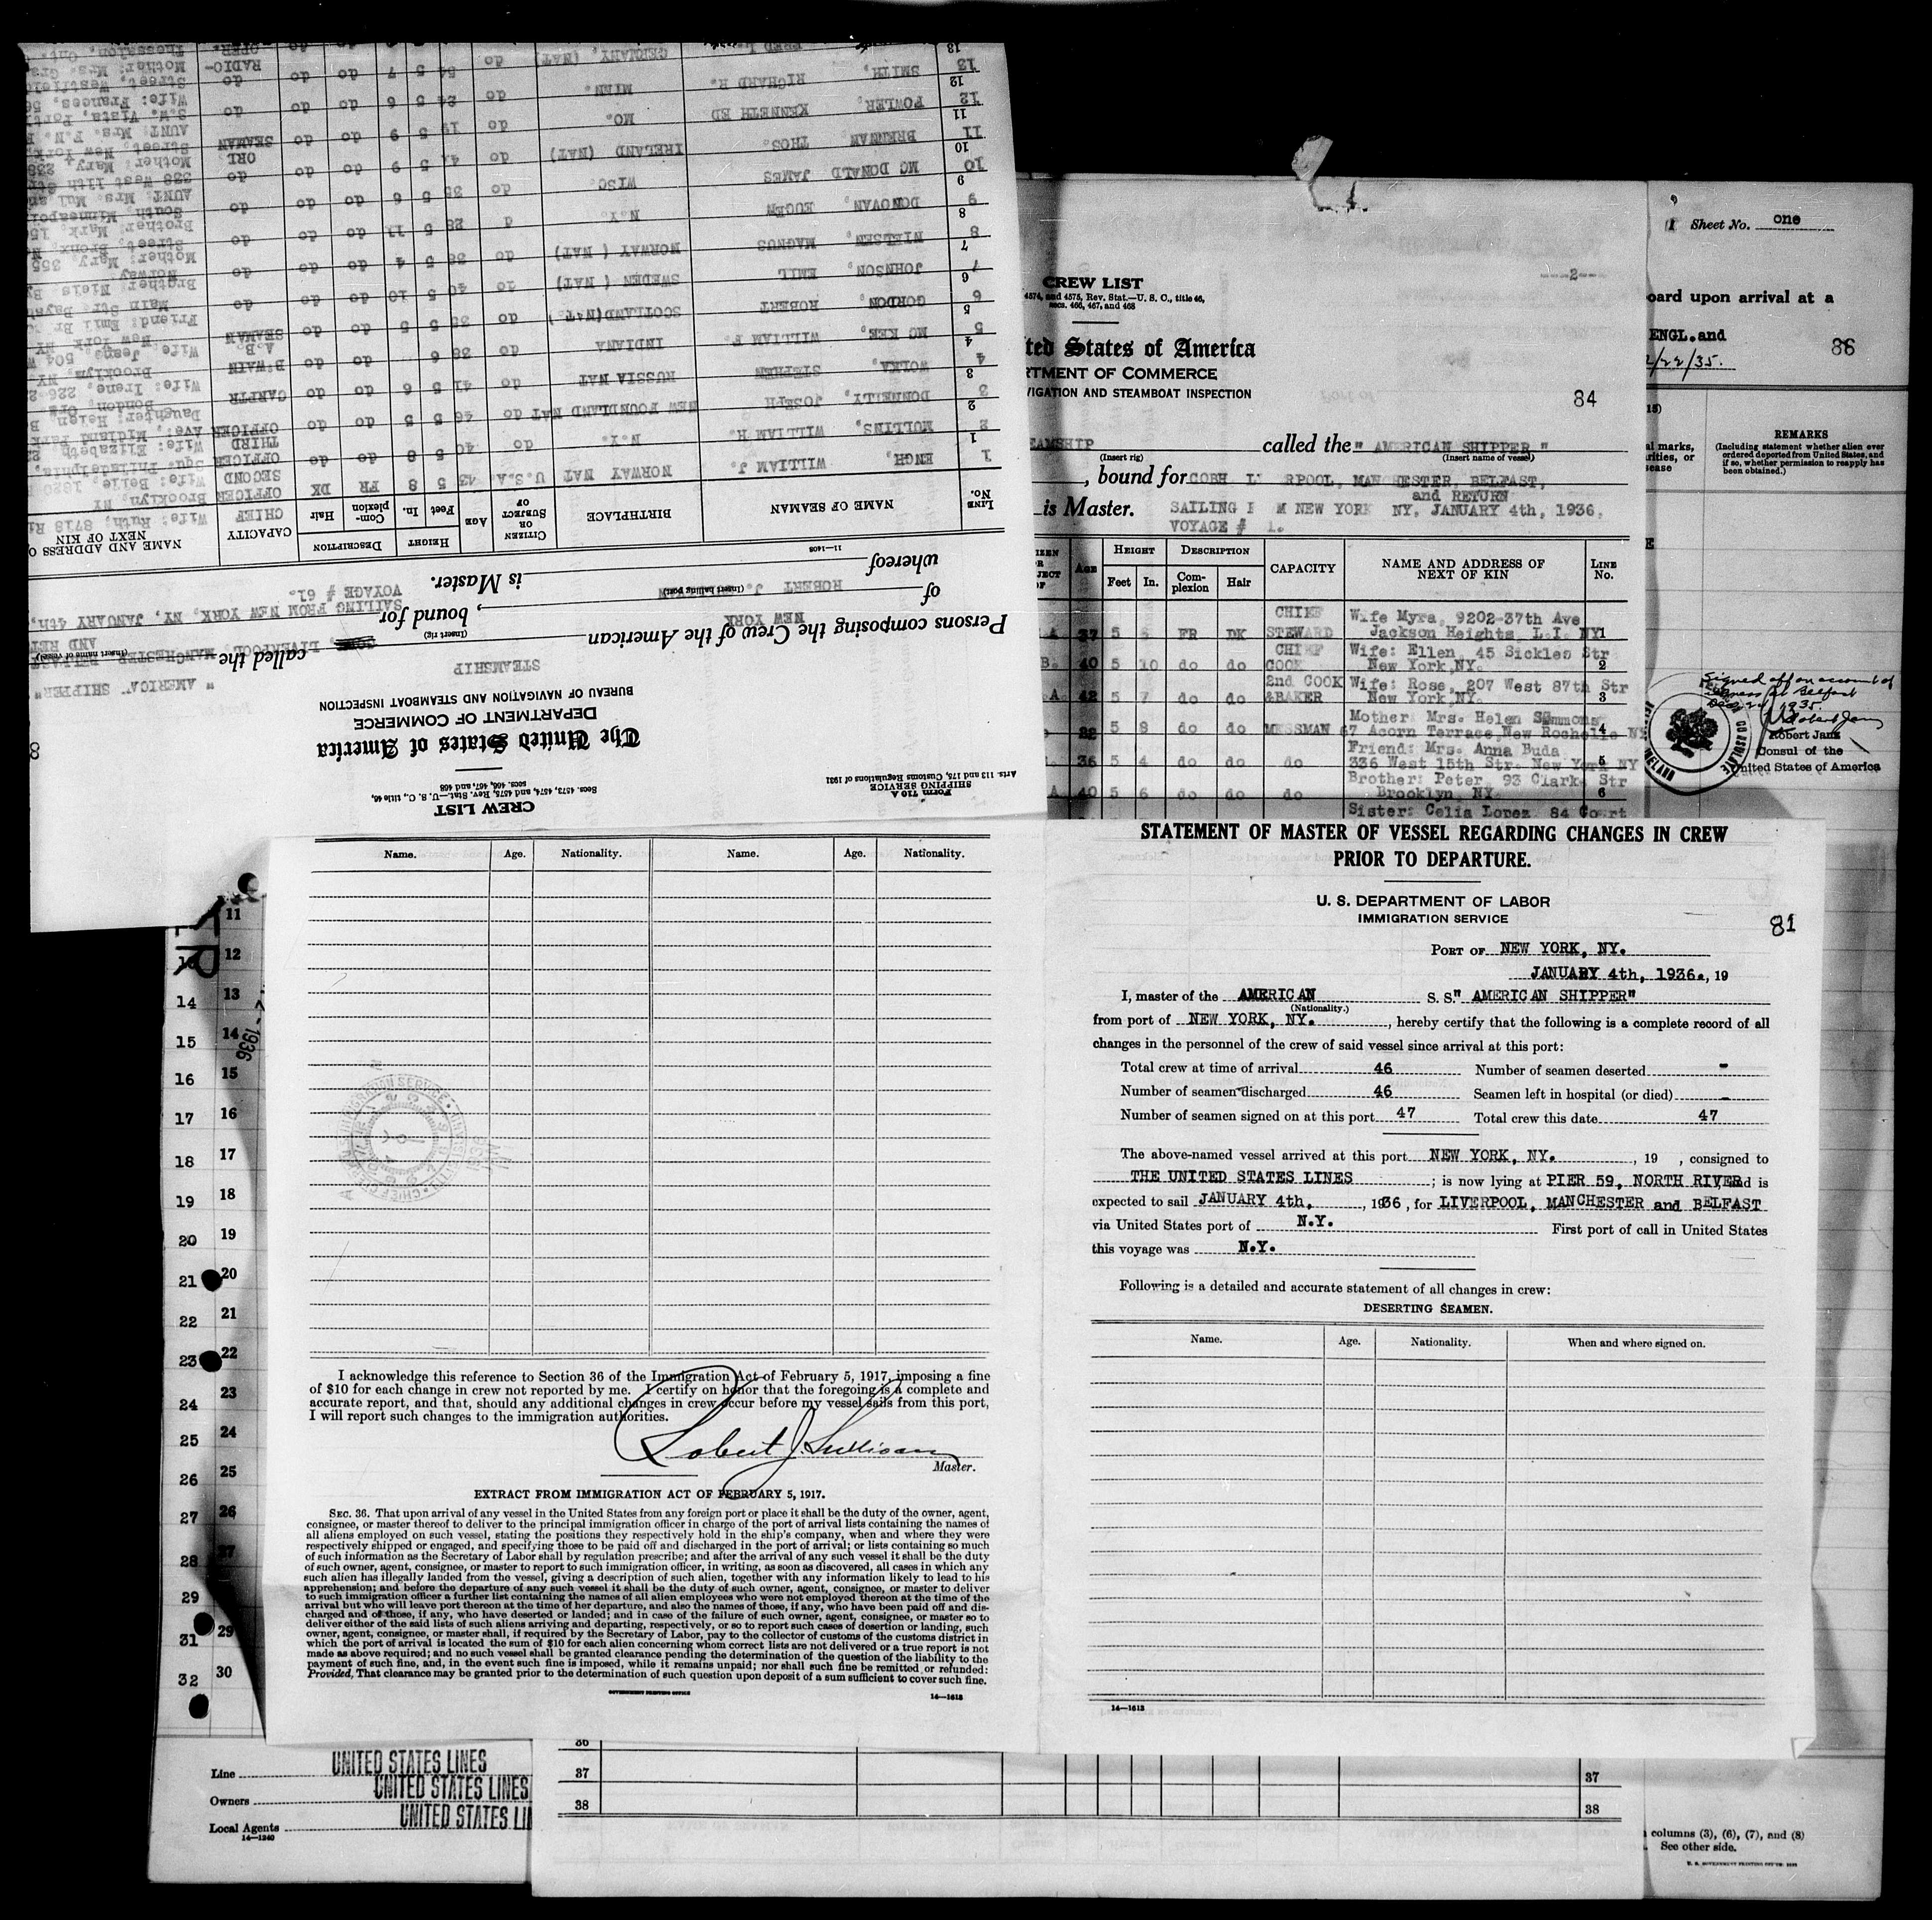 Sheet No. one
oard upon arrival at a
ENGL. and
2/22/35.
86
REMARKS
(Including statement whether alien ever
ordered deported from United States, and
if so, whether permission to reapply has
been obtained.)
Signed off on account of
illness at Belfast
Dec 24 1935.
Robert Janz
Consul of the
United States of America
---2---
CREW LIST
4574, and 4575, Rev. Stat.—U. S. C., title 46,
secs. 466, 467, and 468
ted States of America
RTMENT OF COMMERCE
VIGATION AND STEAMBOAT INSPECTION
84
EAMSHIP called the " AMERICAN SHIPPER "
(Insert rig) (Insert name of vessel)
, bound for COBH L RPOOL, MANCHESTER, BELFAST,
and RETURN
is Master. SAILING F M NEW YORK NY, JANUARY 4th, 1936,
VOYAGE # 1.
AGE HEIGHT DESCRIPTION CAPACITY NAME AND ADDRESS OF NEXT OF KIN LINE No.
Feet In. Complexion Hair
37 5 6 FR DK CHIEF STEWARD Wife Myra, 9202-37th Ave Jackson Heights, L.I. NY 1
40 5 10 do do CHIEF COOK Wife: Ellen, 45 Sickles Str New York, NY. 2
42 5 7 do do 2nd COOK &BAKER Wife: Rose, 207 West 87th Str New York, NY. 3
22 5 8 do do MESSMAN Mother: Mrs. Helen Simmons 67 Acorn Terrace, New Rochelle NY 4
36 5 4 do do do Friend: Mrs. Anna Buda 336 West 15th Str. New York NY 5
40 5 6 do do do Brother: Peter, 93 Clark Str Brooklyn, NY. 6
Sister: Celia Lopez, 84 Court
Form 710 A
SHIPPING SERVICE
Arts. 113 and 175, Customs Regulations of 1931
CREW LIST
Secs. 4573, 4574, and 4575, Rev. Stat.—U. S. C., title 46,
secs. 466, 467, and 468
The United States of America
DEPARTMENT OF COMMERCE
BUREAU OF NAVIGATION AND STEAMBOAT INSPECTION
8
Persons composing the Crew of the American STEAMSHIP called the " AMERICA SHIPPER"
(Insert rig) (Insert name of vessel)
of NEW YORK, bound for LIVERPOOL, MANCHESTER BELFAST
(Insert hailing port)
AND RET
whereof ROBERT J. is Master. SAILING FROM NEW YORK, NY, JANUARY 4th,
VOYAGE # 61.
11—1408
LINE No. NAME OF SEAMAN BIRTHPLACE CITIZEN OR SUBJECT OF AGE HEIGHT DESCRIPTION CAPACITY NAME AND ADDRESS O NEXT OF KIN
Feet In. Complexion Hair
1 ENGH, WILLIAM J. NORWAY NAT U.S.A. 43 5 8 FR DK CHIEF OFFICER Wife: Ruth, 8718 R Brooklyn, NY
2 MULLINS, WILLIAM H. N.Y. do 40 5 8 do do SECOND OFFICER Wife: Belle, 1820 Squ. Philadelphia,
3 DONNELLY, JOSEPH NEW FOUNDLAND NAT do 46 5 5 do do THIRD OFFICER Wife: Elizabeth, Ave., Midland Park
4 WOLKA, STEPHEN RUSSIA NAT do 41 5 6 do do CARPTR Daughter: Helen,
5 MC KEE, WILLIAM F. INDIANA do 38 6 do do B'WAIN Wife: Irene, 226 Brooklyn, NY.
6 GORDON, ROBERT SCOTLAND(NAT.) do 35 5 5 do do A.B. SEAMAN Wife: Jean, 504 W New York NY
7 JOHNSON, EMIL SWEDEN ( NAT) do 40 5 10 do do do Friend: Emil Br Main Str.
8 NIELSEN, MAGNUS NORWAY ( NAT) do 38 5 4 do do do Brother: Niels. Norway
9 DONOVAN, EUGEN N.Y. d 28 5 11 do do do Mother: Mary, 355 Street, Bronx,
10 MC DONALD JAMES WISC. do 35 5 6 do do do Brother: Mark, South, Minneapo
11 BRENNAN THOS. IRELAND (NAT) do 41 5 9 do do do AUNT: Mrs. 338 West 11th Str
12 FOWLER, KENNETH ED MO. do 19 5 9 do do ORL SEAMAN Mother: Mary, 238 Street, New York
13 SMITH, RICHARD R. MINN. do 24 5 6 do do do AUNT: Mrs. F.N. S.W. Vista,
GERMANY (NAT) do 54 5 7 do do do Wife: Frances, 56 Street, Westfield
RADIO-OPER. Mother: Mrs.
Name. Age. Nationality. Name. Age. Nationality.
I acknowledge this reference to Section 36 of the Immigration Act of February 5, 1917, imposing a fine
of $10 for each change in crew not reported by me. I certify on honor that the foregoing is a complete and
accurate report, and that, should any additional changes in crew occur before my vessel sails from this port,
I will report such changes to the immigration authorities.
Robert J. Sullivan
Master.
EXTRACT FROM IMMIGRATION ACT OF FEBRUARY 5, 1917.
SEC. 36. That upon arrival of any vessel in the United States from any foreign port or place it shall be the duty of the owner, agent,
consignee, or master thereof to deliver to the principal immigration officer in charge of the port of arrival lists containing the names of
all aliens employed on such vessel, stating the positions they respectively hold in the ship's company, when and where they were
respectively shipped or engaged, and specifying those to be paid off and discharged in the port of arrival; or lists containing so much
of such information as the Secretary of Labor shall by regulation prescribe; and after the arrival of any such vessel it shall be the duty
of such owner, agent, consignee, or master to report to such immigration officer, in writing, as soon as discovered, all cases in which any
such alien has illegally landed from the vessel, giving a description of such alien, together with any information likely to lead to his
apprehension; and before the departure of any such vessel it shall be the duty of such owner, agent, consignee, or master to deliver
to such immigration officer a further list containing the names of all alien employees who were not employed thereon at the time of the
arrival but who will leave port thereon at the time of her departure, and also the names of those, if any, who have been paid off and dis-
charged and of those, if any, who have deserted or landed; and in case of the failure of such owner, agent, consignee, or master so to
deliver either of the said lists of such aliens arriving and departing, respectively, or so to report such cases of desertion or landing, such
owner, agent, consignee, or master shall, if required by the Secretary of Labor, pay to the collector of customs of the customs district in
which the port of arrival is located the sum of $10 for each alien concerning whom correct lists are not delivered or a true report is not
made as above required; and no such vessel shall be granted clearance pending the determination of the question of the liability to the
payment of such fine, and, in the event such fine is imposed, while it remains unpaid; nor shall such fine be remitted or refunded:
Provided, That clearance may be granted prior to the determination of such question upon deposit of a sum sufficient to cover such fine.
GOVERNMENT PRINTING OFFICE 14—1613
STATEMENT OF MASTER OF VESSEL REGARDING CHANGES IN CREW
PRIOR TO DEPARTURE.
U. S. DEPARTMENT OF LABOR
IMMIGRATION SERVICE
81
PORT OF NEW YORK, NY.
JANUARY 4th, 1936., 19
I, master of the AMERICAN S. S." AMERICAN SHIPPER"
(Nationality.)
from port of NEW YORK, NY., hereby certify that the following is a complete record of all
changes in the personnel of the crew of said vessel since arrival at this port:
Total crew at time of arrival 46 Number of seamen deserted -
Number of seamen discharged 46 Seamen left in hospital (or died) -
Number of seamen signed on at this port 47 Total crew this date 47
The above-named vessel arrived at this port NEW YORK, NY. , 19 , consigned to
THE UNITED STATES LINES ; is now lying at PIER 59, NORTH RIVER and is
expected to sail JANUARY 4th, , 1936 , for LIVERPOOL, MANCHESTER and BELFAST
via United States port of N.Y. First port of call in United States
this voyage was N.Y.
Following is a detailed and accurate statement of all changes in crew:
DESERTING SEAMEN.
Name. Age. Nationality. When and where signed on.
14—1613
11
12
13
14
15
16
17
18
19
20
21
22
23
24
25
26
27
28
29
31
32
11
12
13
14
15
16
17
18
19
20
21
22
23
24
25
26
27
28
29
30
1936
Line UNITED STATES LINES
Owners UNITED STATES LINES
Local Agents UNITED STATES LI
14—1240
36
37 37
38 38
columns (3), (6), (7), and (8)
See other side.